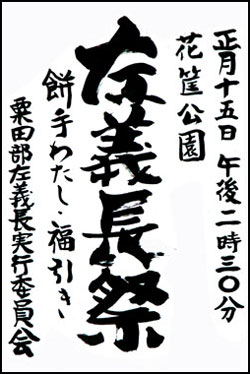 正月十五日 午後二時三〇分
花筐公園
左義長祭
餅手わたし・福引き
粟田部左義長実行委員会